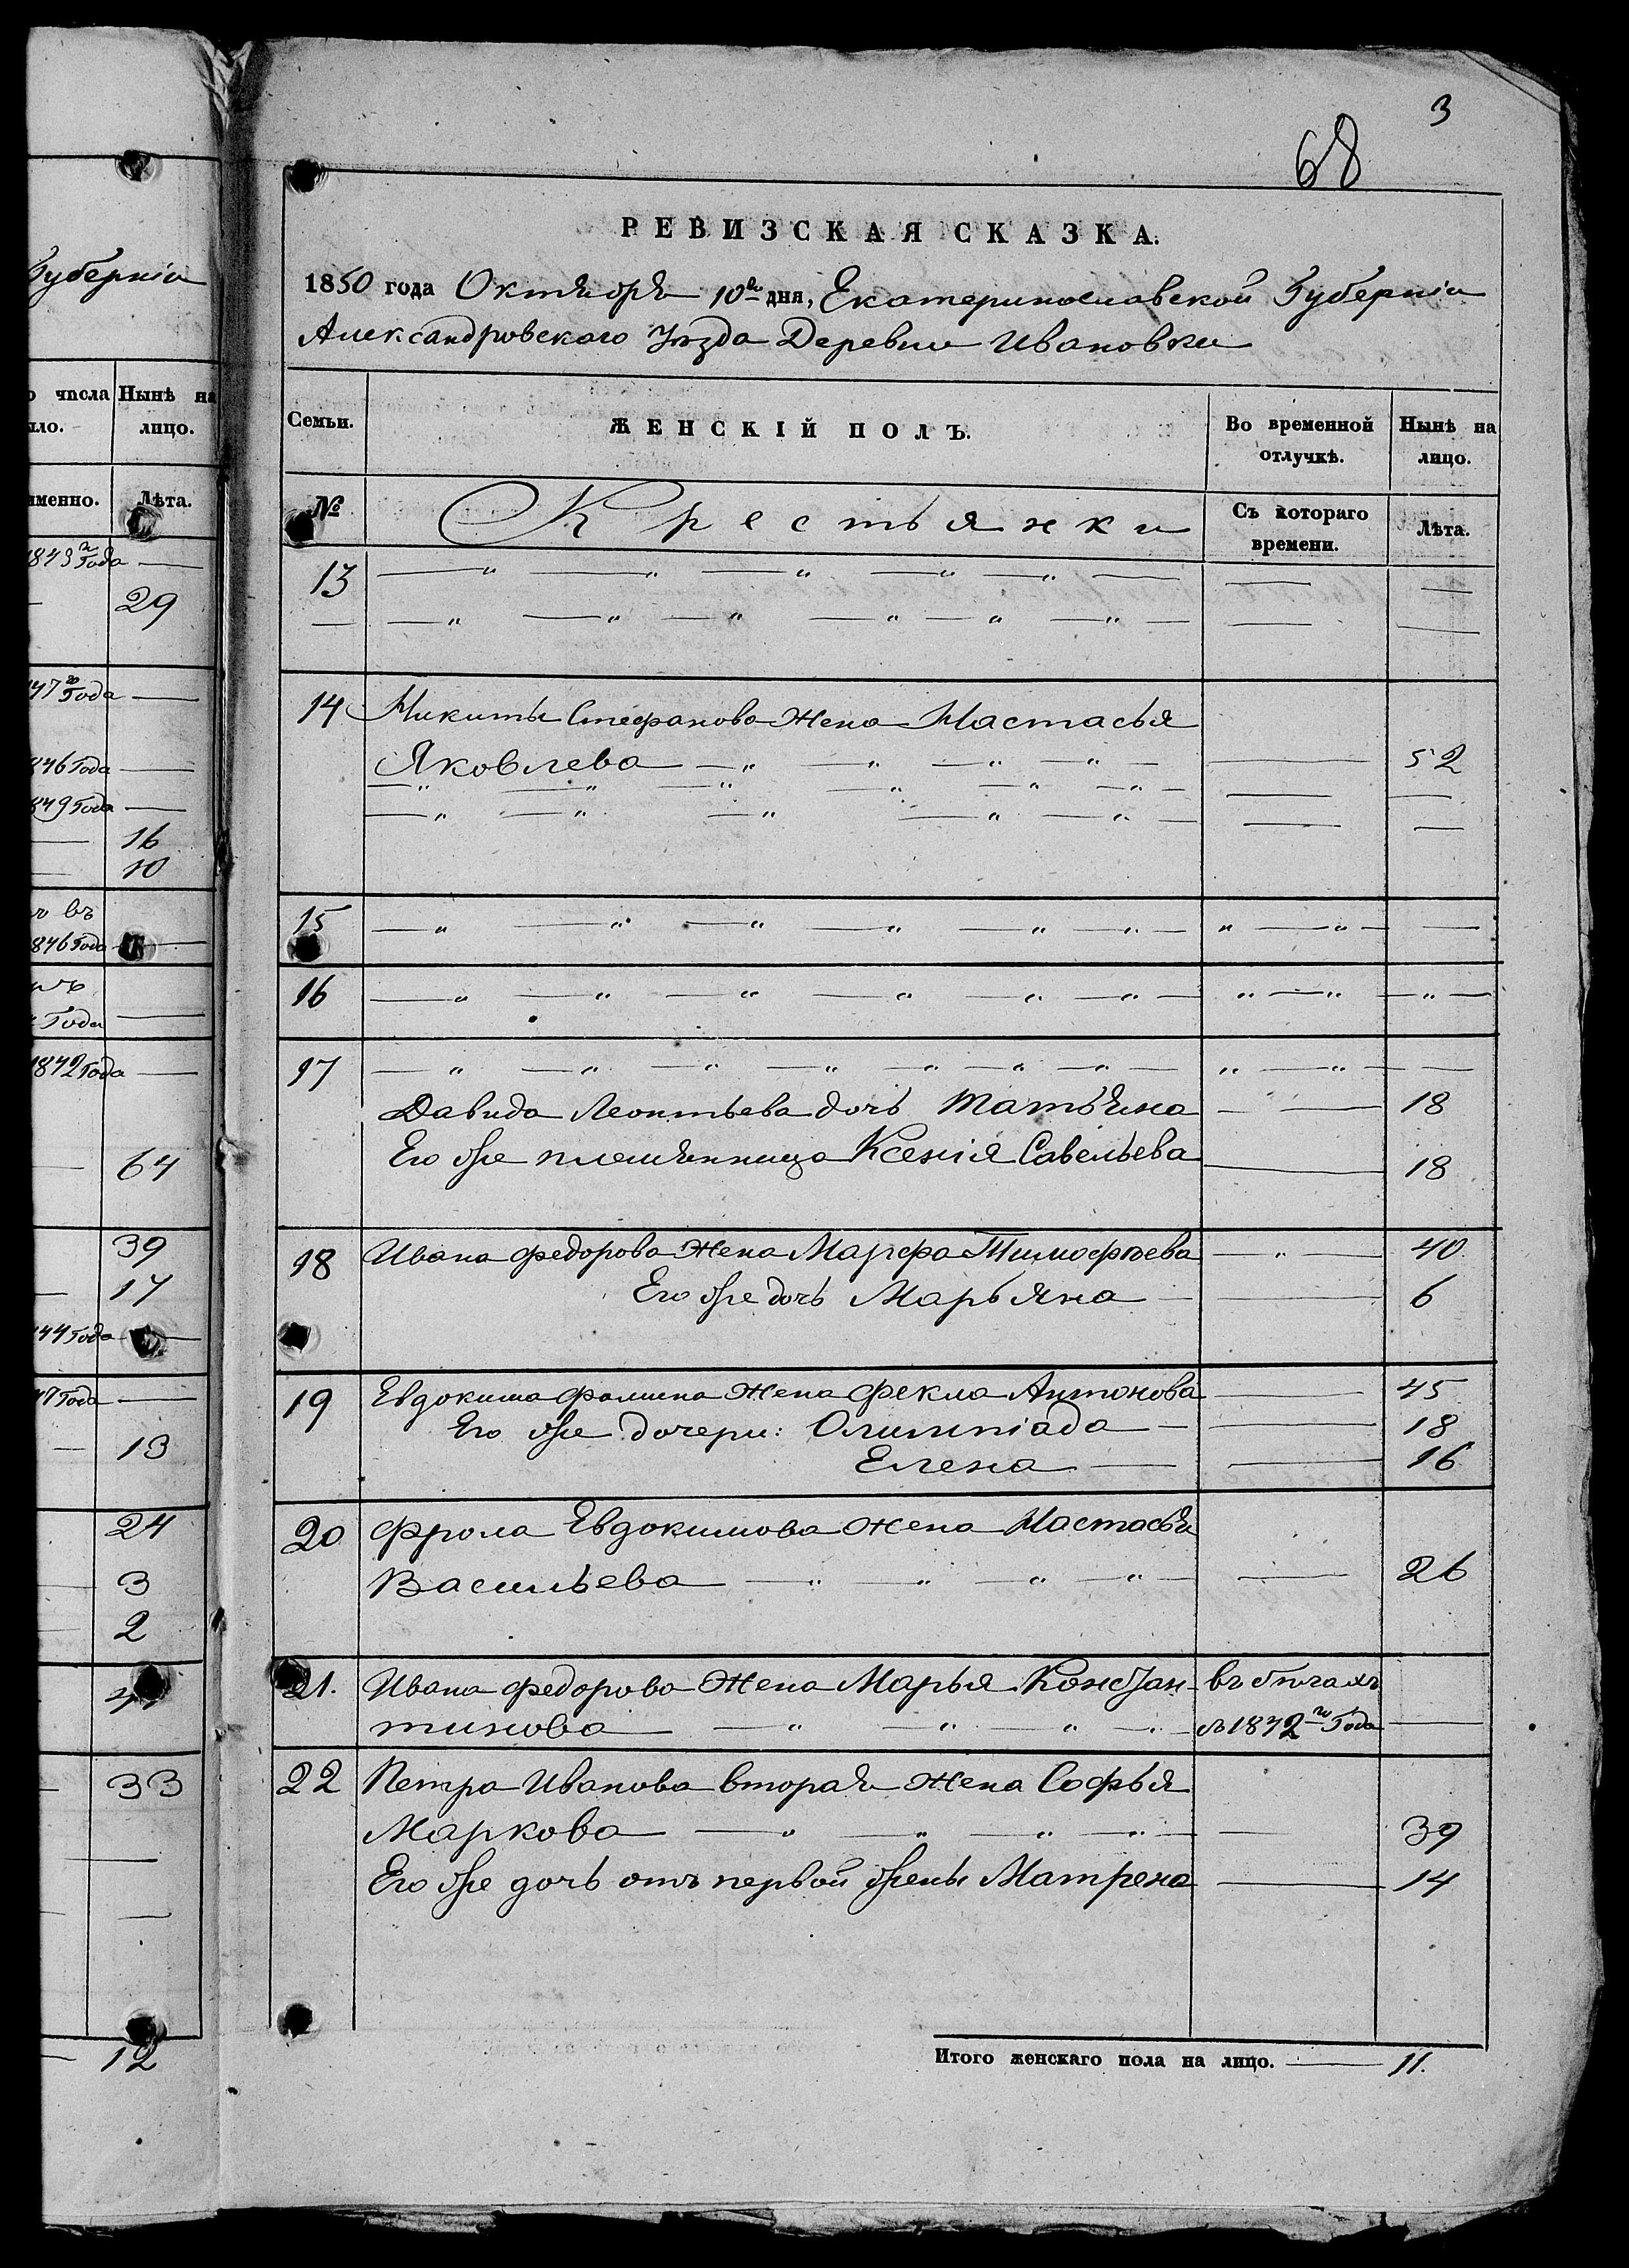 3
68
РЕВИЗСКАЯ СКАЗКА.
1850 года Октября 10го дня, Екатеринославской Губерніи
Александровского Уѣзда Деревни Ивановки
Семьи. ЖЕНСКІЙ ПОЛЪ. Во временной отлучкѣ. Нынѣ на лицо.
№ Крестьянки Съ котораго времени. Лѣта.
13
14 Никиты Стефанова Жена Настасья
Яковлева 52
15
16
17
Давида Леонтьева дочь Татьяна 18
Его же племянница Ксенія Савельева 18
18 Ивана Федорова Жена Марфа Тимофѣева 40
Его же дочь Марьяна 6
19 Евдокима Фомина Жена Фекла Антонова 45
Его же дочери: Олимпіада 18
Елена 16
20 Фрола Евдокимова жена Настасья
Васильева 26
21. Ивана Федорова Жена Марья Констан- въ бѣгахъ
тинова съ 1842го Года
22 Петра Иванова вторая жена Софья
Маркова 39
Его же дочь отъ первой жены Матрена 14
Итого женскаго пола на лицо. 11.
Губерніи
числа Нынѣ на
ло. лицо.
именно. Лѣта.
1843го Года
29
47го Года
846 Года
849 Года
16
10
въ
846 Года
Года
1842 Года
64
39
17
44 Года
47 Года
13
24
3
2
33
12